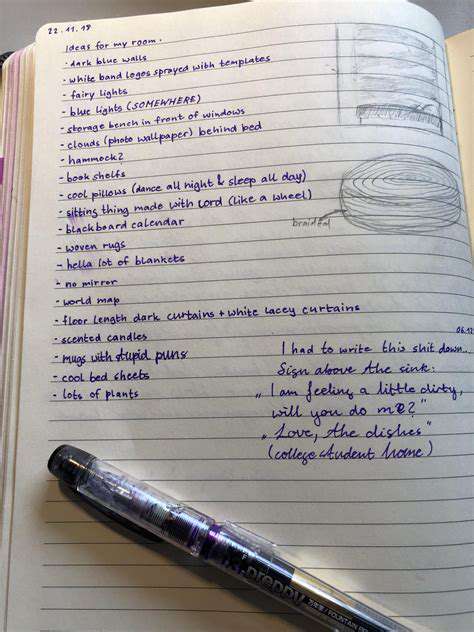 22.11.18
Ideas for my room.
- dark blue walls
- white band logos sprayed with templates
- fairy lights
- blue lights (SOMEWHERE)
- storage bench in front of windows
- clouds (photo wallpaper) behind bed
- hammock?
- book shelfs
- cool pillows (dance all night & sleep all day)
- sitting thing made with cord (like a wheel)
braided
- blackboard calendar
- woven rugs
- hella lot of blankets
- no mirror
- world map
- floor length dark curtains + white lacey curtains
- scented candles
- mugs with stupid puns
- cool bed sheets
- lots of plants
06.12
I had to write this shit down...
Sign above the sink:
„I am feeling a little dirty,
will you do me?"
„Love, the dishes"
(college student home)
preppy
FOUNTAIN